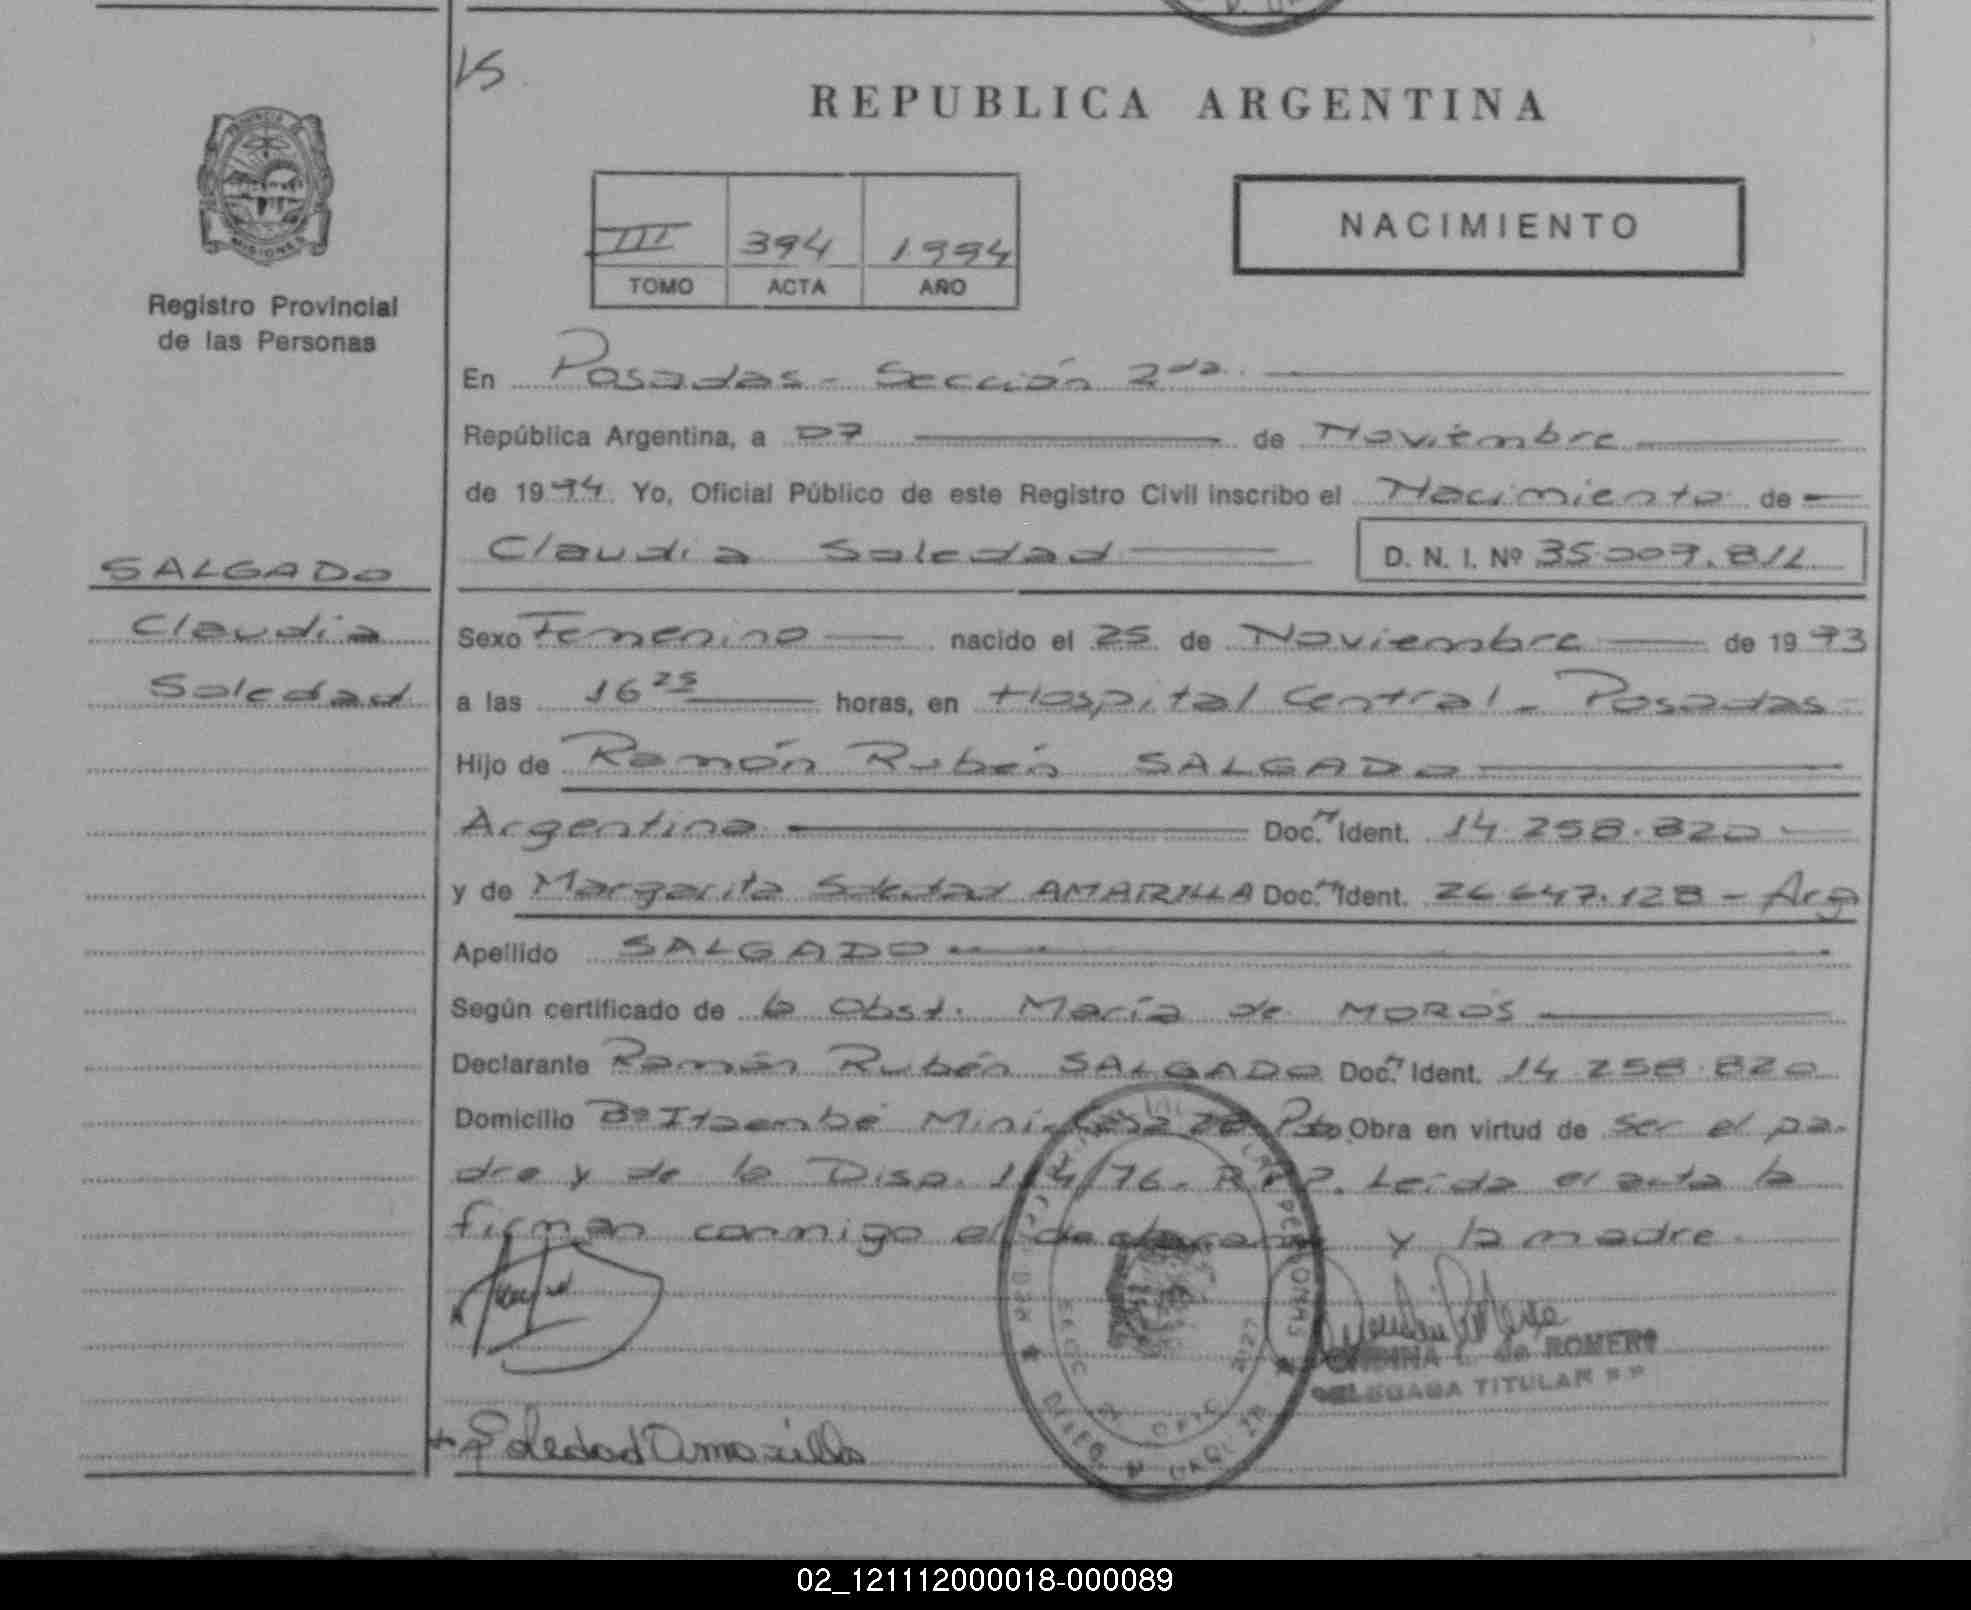 15
REPUBLICA ARGENTINA
MISIONES
Registro Provincial
de las Personas
III 394 1.994
TOMO ACTA AÑO
NACIMIENTO
En Posadas - Sección 2da.
República Argentina, a 07 de Noviembre
de 1994 Yo, Oficial Público de este Registro Civil inscribo el Nacimiento de
Claudia Soledad D. N. I. Nº 35.009.811
SALGADO
Claudia
Soledad
Sexo Femenino nacido el 25 de Noviembre de 1993
a las 16 25 horas, en Hospital Central - Posadas
Hijo de Ramón Rubén SALGADO
Argentina Doc. Ident. 14.258.820
y de Margarita Soledad AMARILLA Doc. Ident. 26.647.128 - Arg
Apellido SALGADO
Según certificado de la Obst. María de MOROS
Declarante Ramón Rubén SALGADO Doc. Ident. 14.258.820
Domicilio Bº Itaembé Miní Obra en virtud de ser el pa-
dre y de la Disp. 114/76. R.P.P. Leída el acta la
firman conmigo el declarante y la madre.
de ROMERO
DELEGADA TITULAR R.P.
Soledad Amarilla
02_121112000018-000089